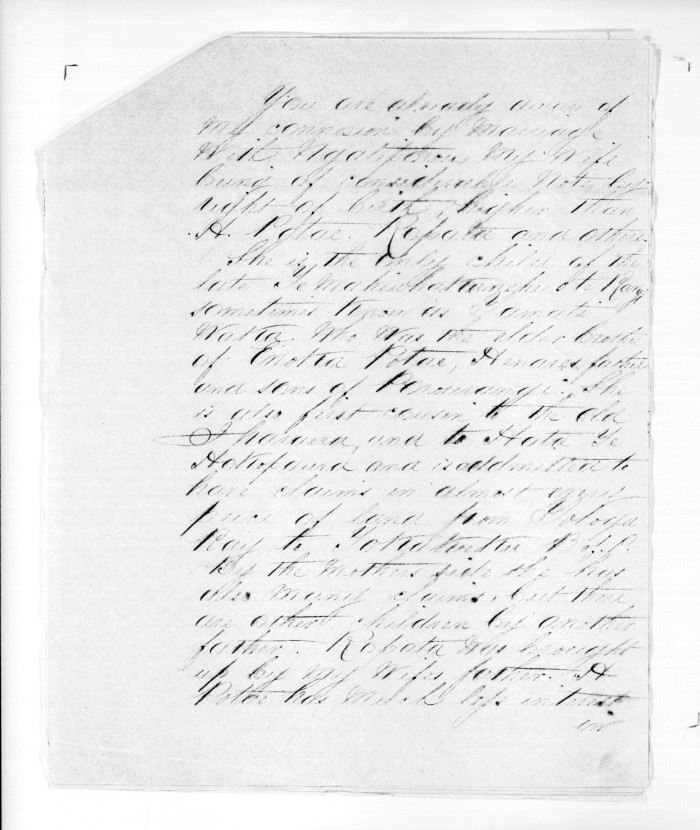 You are already aware of
my connexion by Marriage
With Ngatiporou, My Wife
being of considerable Note, by
right of birth, higher than
H. Potae. Ropata and others.
She is, the only child of the
late Te
sometimes Know as Tamati
Waka. Who Was the elder brother
of Enoka Potae, Henares father
and sons of She
is also first cousin to the old
and to Hata Te
and is addmitted to
have claims in almost every
piece of land from Tologa
Bay to
By the Mothers side she has
also Many claims, but there
are other children by another
father. Ropata Was brought
up by My Wifes father. H
Potae has Much less interest
in